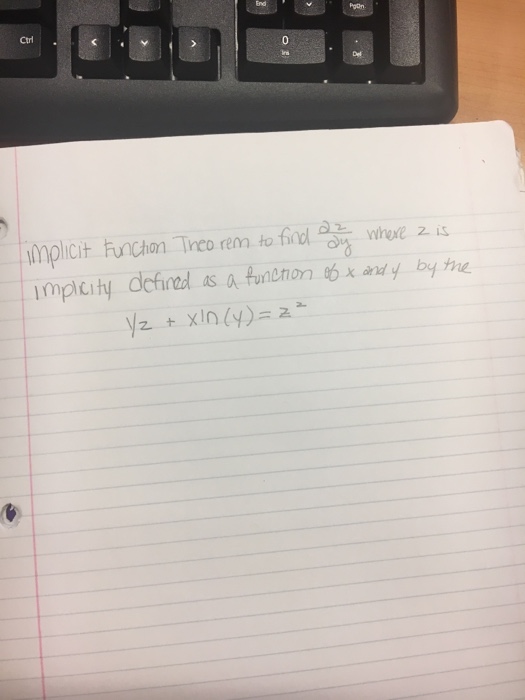 End
PgDn
Ctrl
<
>
0
Ins
Del
implicit Function Theorem to find ∂z/∂y where z is
implicity defined as a function of x and y by the
yz + xln(y) = z²